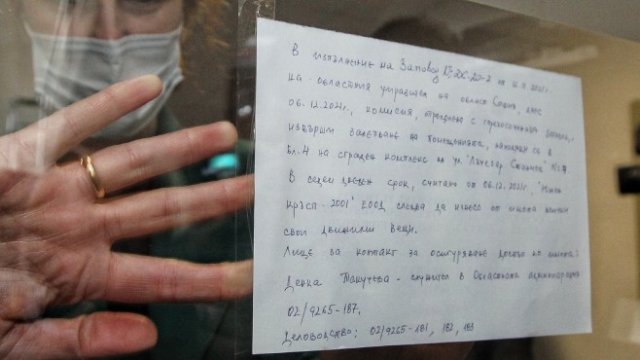 В изпълнение на Заповед № на
на областния управител на област София, днес
06.12.2021г., комисия, определена с горепосочената заповед,
извърши запечатване на помещенията, находящи се в
Ет. 4 на сграден комплекс на ул.
В седем дневен срок, считано от 06.12.2021г. "Южен
кръст - 2001" ЕООД следва да изнесе от имота всички
свои движими вещи.
Лице за контакт за осигуряване достъп до имота:
Денка - служител в Областна администрация
02/9265-187.
Деловодство: 02/9265-181, 182, 183